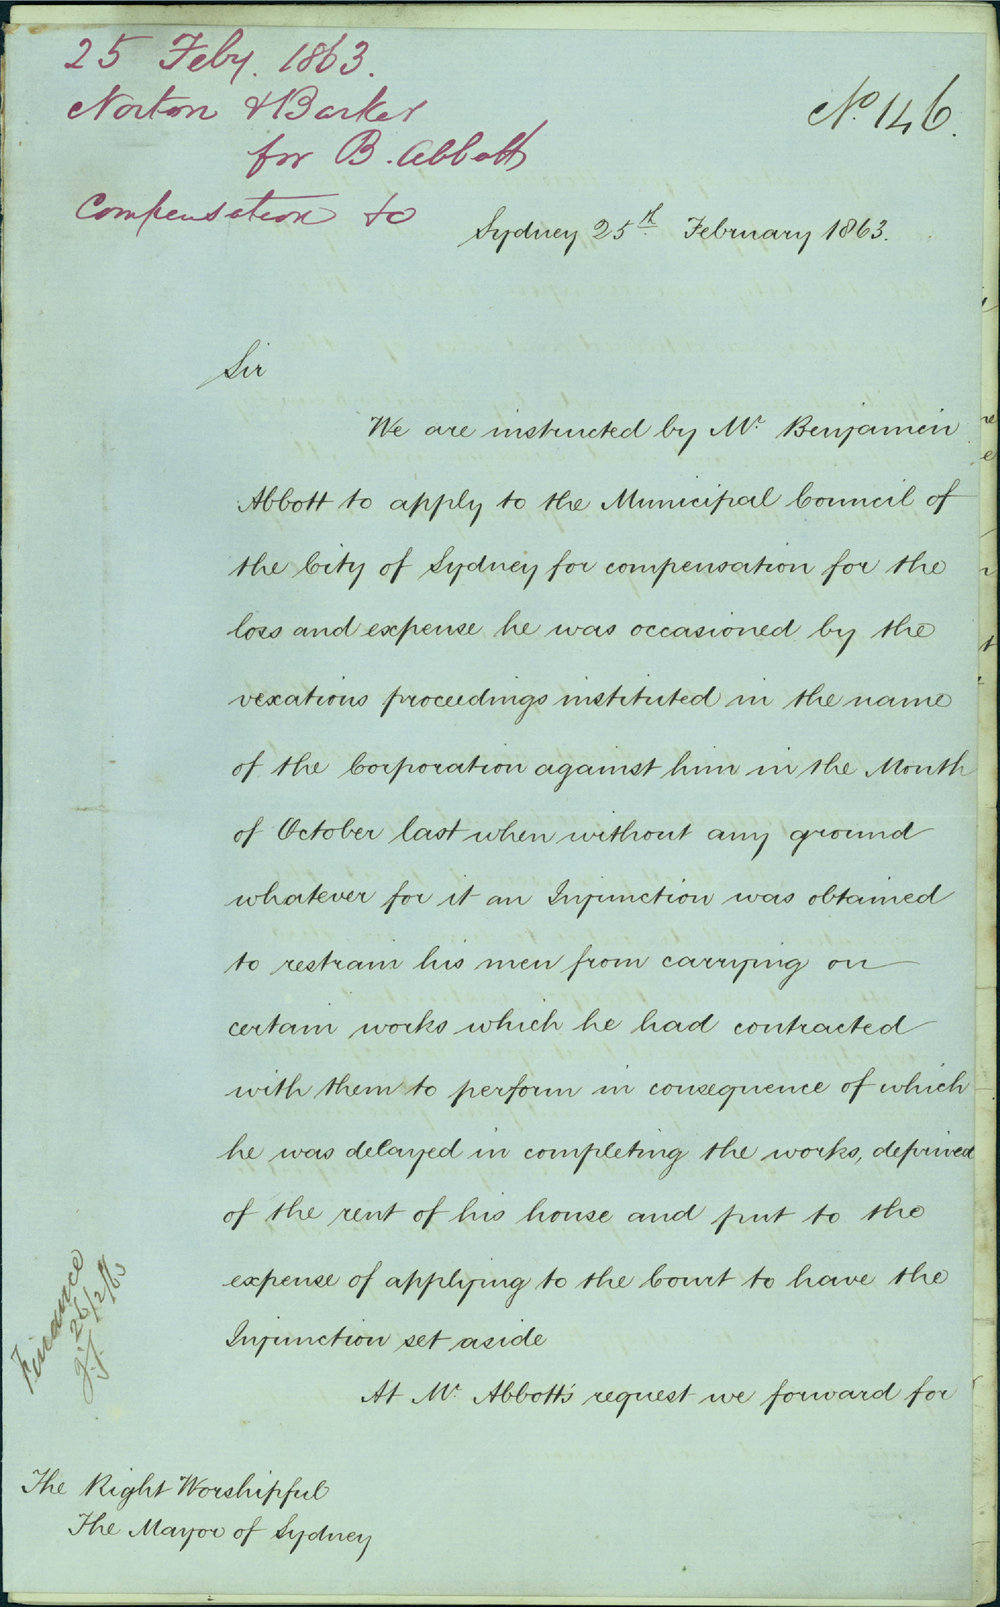 25 Feby. 1863.
Norton & Barker
for B. Abbott
Compensation to
No. 146.
Sydney 25th. February 1863.
Sir
We are instructed by Mr. Benjamin
Abbott to apply to the Municipal Council of
the City of Sydney for compensation for the
loss and expense he was occasioned by the
vexatious proceedings instituted in the name
of the Corporation against him in the Month
of October last when without any ground
whatever for it an Injunction was obtained
to restrain his men from carrying on
certain works which he had contracted
with them to perform in consequence of which
he was delayed in completing the works, deprived
of the rent of his house and put to the
expense of applying to the Court to have the
Injunction set aside
At Mr. Abbott's request we forward for
Finance
26/2/63
The Right Worshipful
The Mayor of Sydney